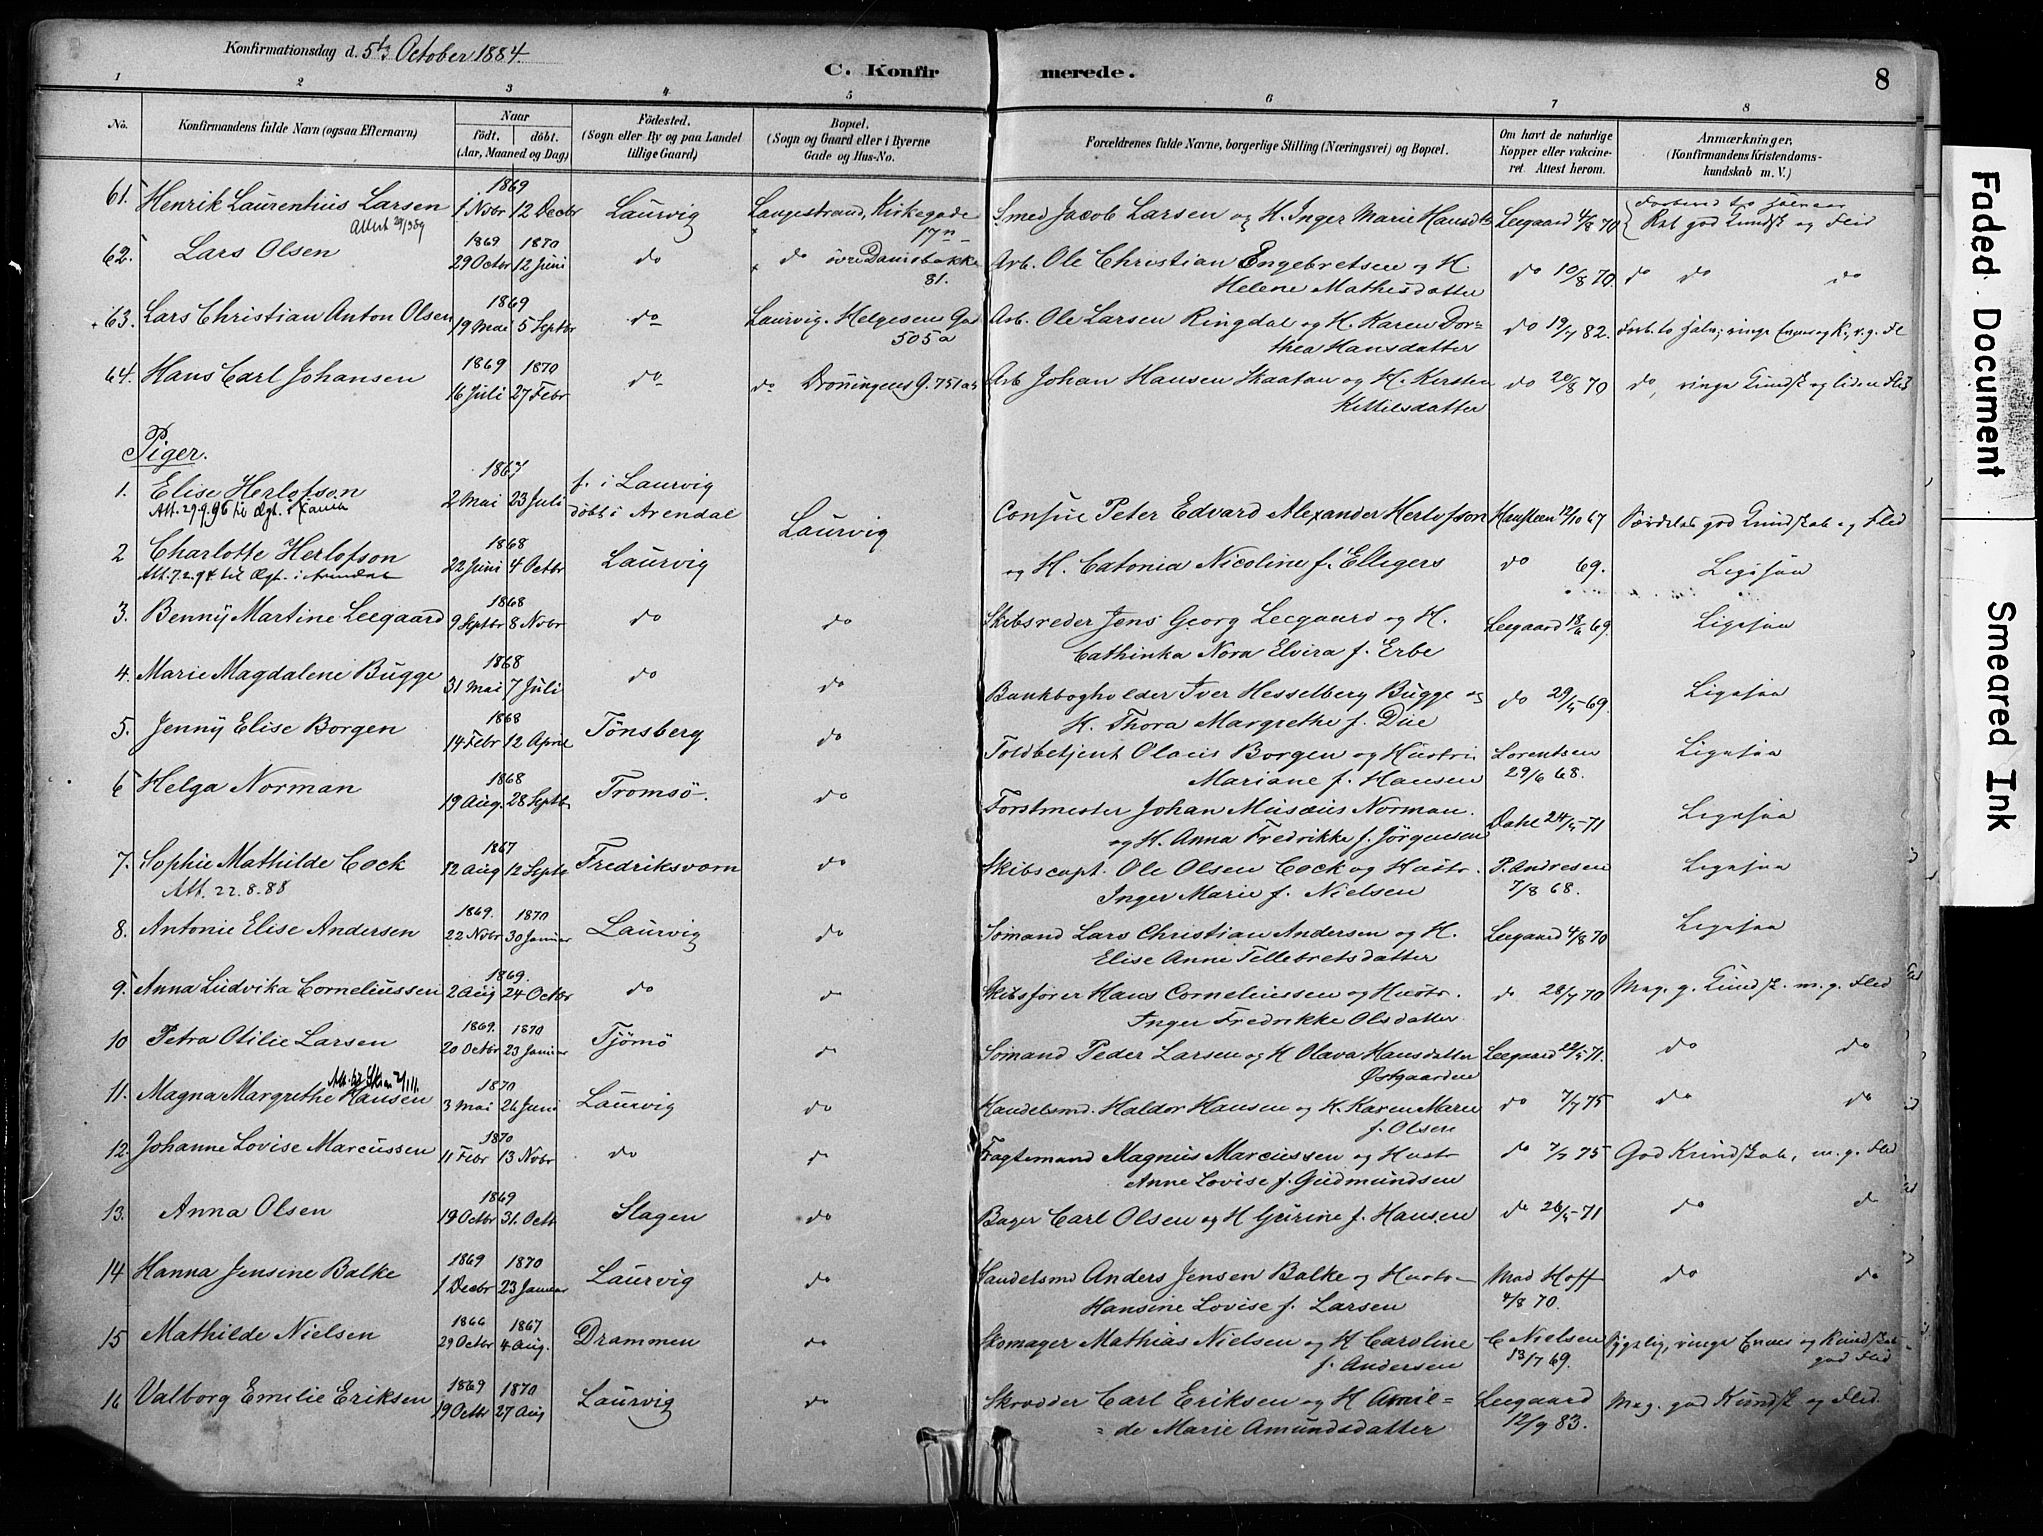 Konfirmationsdag d. 5te October 1884.
C. Konfirmerede.
8
1 2 3 4 5 6 7 8
No. Konfirmandens fulde Navn (ogsaa Efternavn) Naar födt. döbt. (Aar, Maaned og Dag) Födested. (Sogn eller By og paa Landet tillige Gaard) Bopæl. (Sogn og Gaard eller i Byerne Gade og Hus-No. Forældrenes fulde Navne, borgerlige Stilling (Næringsvei) og Bopæl. Om havt de naturlige Kopper eller vakcineret. Attest herom. Anmærkninger, (Konfirmandens Kristendomskundskab m. V.)
61. Henrik Laurentius Larsen 1869 1 Novbr 12 Decbr Laurvig Langestrand, Kirkegade 17 Smed Jacob Larsen og H. Inger Marie Hansdtr Leegaard 4/8 70 god Kundsk og Flid
62. Lars Olsen 1869 29 Octbr 1870 12 Juni do do övre Damsbakke 81. Arb. Ole Christian Engebretsen og H. Helene Mathisdatter do 10/8 70. do do do
63. Lars Christian Anton Olsen 1869 19 Mai 5 Septbr do Laurvig. Helgesens Gd 505a Arb. Ole Larsen Ringdal og H. Karen Dor=
thea Hansdatter do 19/7 82. ringe Evner og K.
64. Hans Carl Johansen 1869 16 Juli 1870 27 Febr do do Dronningens G. Arb Johan Hansen Skaatan og H. Kirsten Kittilsdatter do 20/8 70 do, ringe Kundsk og liden Flid
Piger.
1. Elise Herlofson 1867 2 Mai 23 Juli f. i Laurvig döbt i Arendal Laurvig Consul Peter Edvard Alexander Herlofson Hansteen 12/10 67 Særdeles god Kundskab og Flid
Att. 29.9.96 til Ægt. i
2 Charlotte Herlofson 1868 22 Juni 4 Octbr Laurvig og H. Catonia Nicoline f. Elligers do 69. Ligesaa
Att. 7.2.94 til Ægt. i Arendal
3. Benny Martine Leegaard 1868 9 Septbr 8 Novbr do do Skibsreder Jens Georg Leegaard og H. Cathinka Nora Elvira f. Erbe Leegaard 18/6 69. Ligesaa
4. Marie Magdalene Bugge 1868 31 Mai 7 Juli do do Bankbogholder Iver Hesselberg Bugge og H. Thora Margrethe f. Due do 29/5 69. Ligesaa
5. Jenny Elise Borgen 1868 14 Febr 12 April Tönsberg do Toldbetjent Olaus Borgen og Hustru Mariane f. Hansen Lorentsen 29/6 68. Ligesaa
6 Helga Norman 1868 19 Aug. 28 Septbr Tromsö. do Forstmester Johan Musæus Norman. og H. Anna Fredrikke f. Jörgensen Dahl 24/5 71 Ligesaa
7. Sophie Mathilde Cock 1867 12 Aug 12 Septr Fredriksvorn do Skibscapt. Ole Olsen Cock og Hustr. Inger Marie f. Nielsen P. Andresen 7/8 68. Ligesaa
Att. 22.8.88
8. Antonie Elise Andersen 1869. 22 Novbr 1870 30 Januar Laurvig do Sömand Lars Christian Andersen og H. Elise Anne Tellebretsdatter Leegaard 4/8 70 Ligesaa
9. Anna Ludvika Corneliussen 1869. 2 Aug 24 Octbr do do Skibsförer Hans Corneliussen og Hustr. Inger Fredrikke Olsdatter do 28/7 70 Meg. g. Kundsk. m. g. Flid
10 Petra Otilie Larsen 1869. 20 Octbr 1870 23 Januar Tjömö do Sömand Peder Larsen og H Olava Hansdatter Östgaarden Leegaard 22/5 71. do do
11. Magna Margrethe Hansen 1870 3 Mai 26 Juni Laurvig do Handelsmd. Haldor Hansen og H. Karen Marie f. Olsen do 7/7 75 do do
12. Johanne Lovise Marcussen 1870 11 Febr 13 Novbr do do Fragtemand Magnus Marcussen og Hustr Anne Lovise f. Gudmundsen do 7/7 75 God Kundskab, m. g. Flid
13. Anna Olsen 1869 19 Octbr 31. Octr Slagen do Bager Carl Olsen og H Gurine f. Hansen do 26/5 71 do do
14 Hanna Jensine Balke 1869 1 Decbr 1870 23 Januar Laurvig do Handelsmd Anders Jensen Balke og Hustr Hansine Lovise f. Larsen Mad Hoff 4/8 70. do do
15 Mathilde Nielsen 1866 29 Octbr 1867 4 Aug. Drammen do Skomager Mathias Nielsen og H Caroline f. Andersen C Nielsen 13/7 69. Sygelig, ringe Evner og Kundskab god Flid
16 Valborg Emilie Eriksen 1869 19 Octbr 1870 27 Aug Laurvig do Skrædder Carl Eriksen og H Amil=
=de Marie Amundsdatter Leegaard 12/9 83. Meg. god Kundsk og Flid.
Faded Document
Smeared Ink